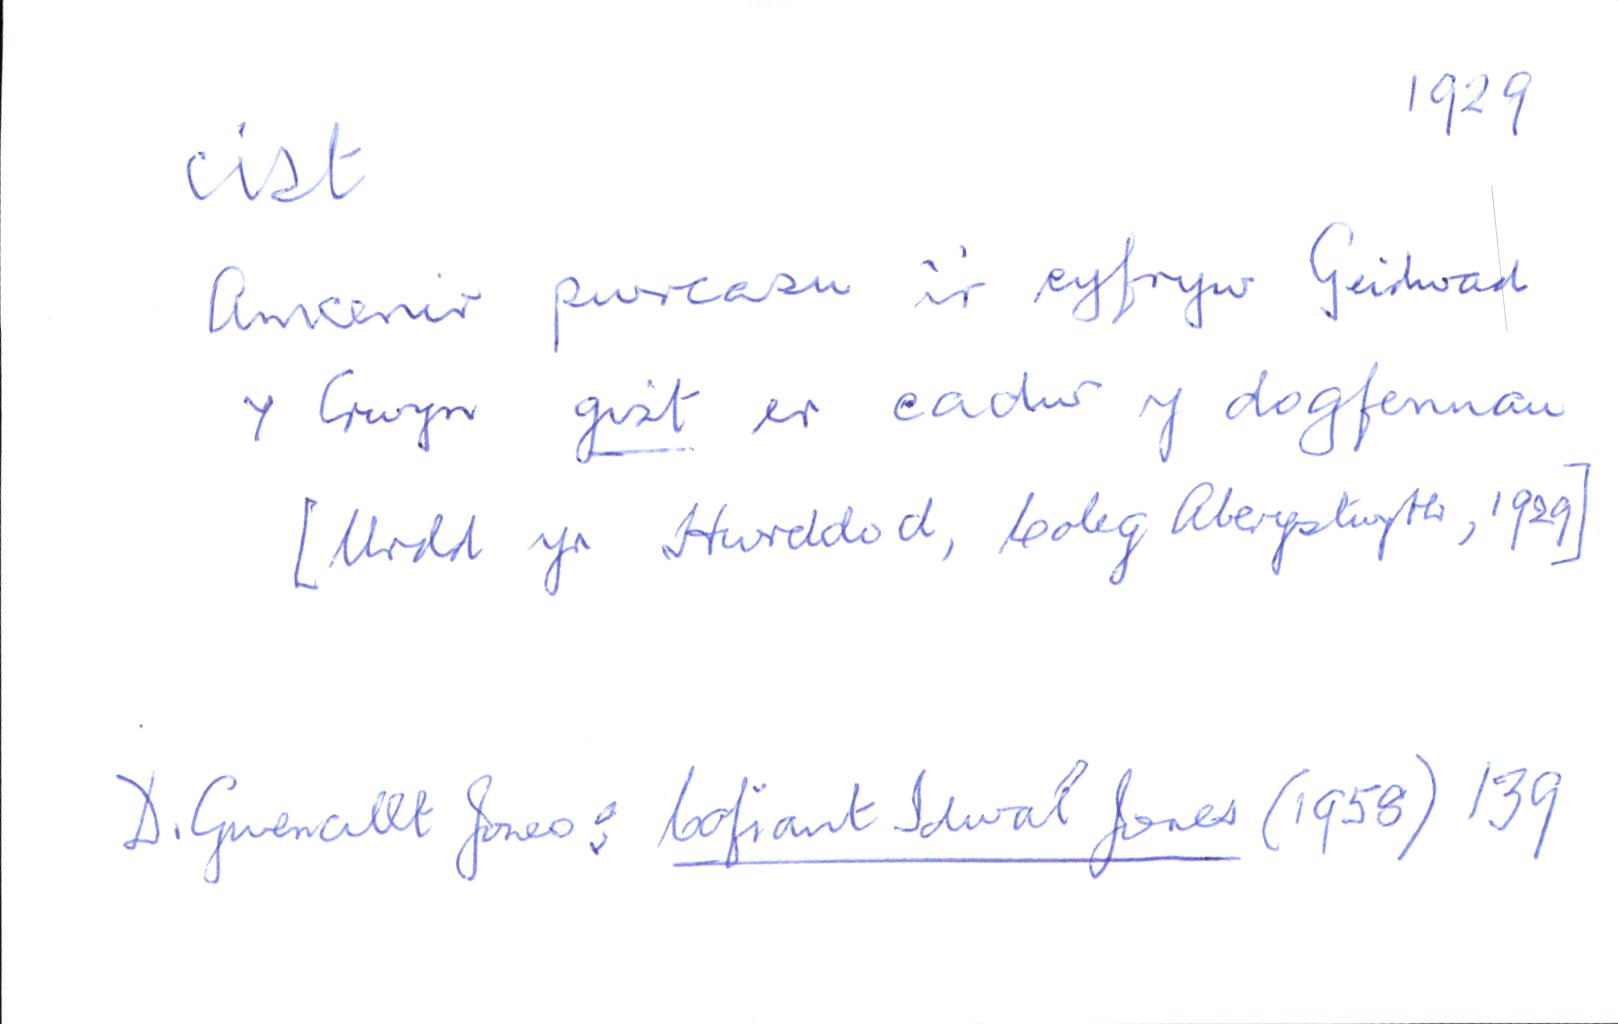 1929
cist
Amcenir pwrcasu i'r cyfryw Geidwad
y Crwyn gist er cadw y dogfennau
[Urdd yr Hwrddod, Coleg Aberystwyth, 1929]
D. Gwenallt Jones: Cofiant Idwal Jones (1958) 139